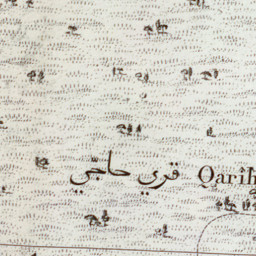 قري حاجي Qarih